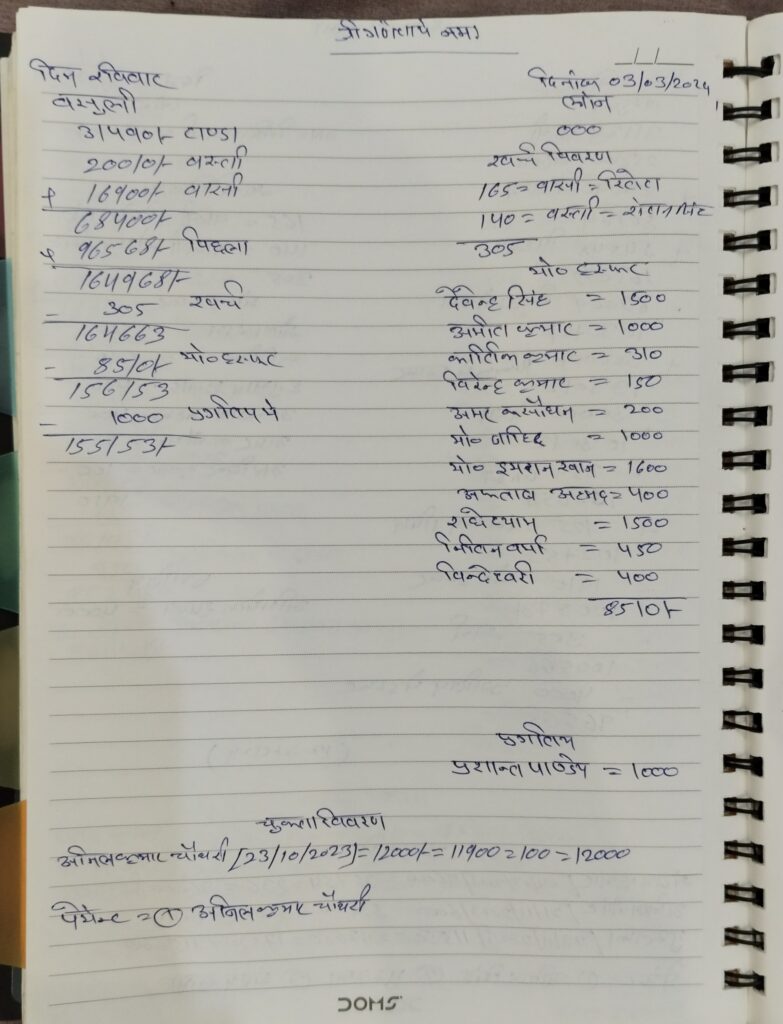 श्री गणेशाय नमः
दिन रविवार
दिनांक 03/03/2024
वसुली
लोन
31490/- टाण्डा
000
20010/- बस्ती
खर्च विवरण
+ 16900/- वासी
165 = वासी =
68400/-
140 = बस्ती =
+ 96568/- पिछला
305
164968/-
मो०
- 305 खर्च
देवेन्द्र सिंह = 1500
164663
अमीत कुमार = 1000
- 8510/- मो०
कार्तिक कुमार = 310
156153
विरेन्द्र कुमार = 150
- 1000
अमर = 200
155153/-
मो० जाहिद = 1000
मो० इमरान खान = 1600
अफताब अहमद = 400
राधेश्याम = 1500
नितिन वर्मा = 450
विन्देश्वरी = 400
8510/-
प्रशान्त पाण्डेय = 1000
चुक्ता विवरण
अनिल कुमार चौधरी [23/10/2023] = 12000/- = 11900 = 100 = 12000
पेमेन्ट = (1) अनिल कुमार चौधरी
DOMS